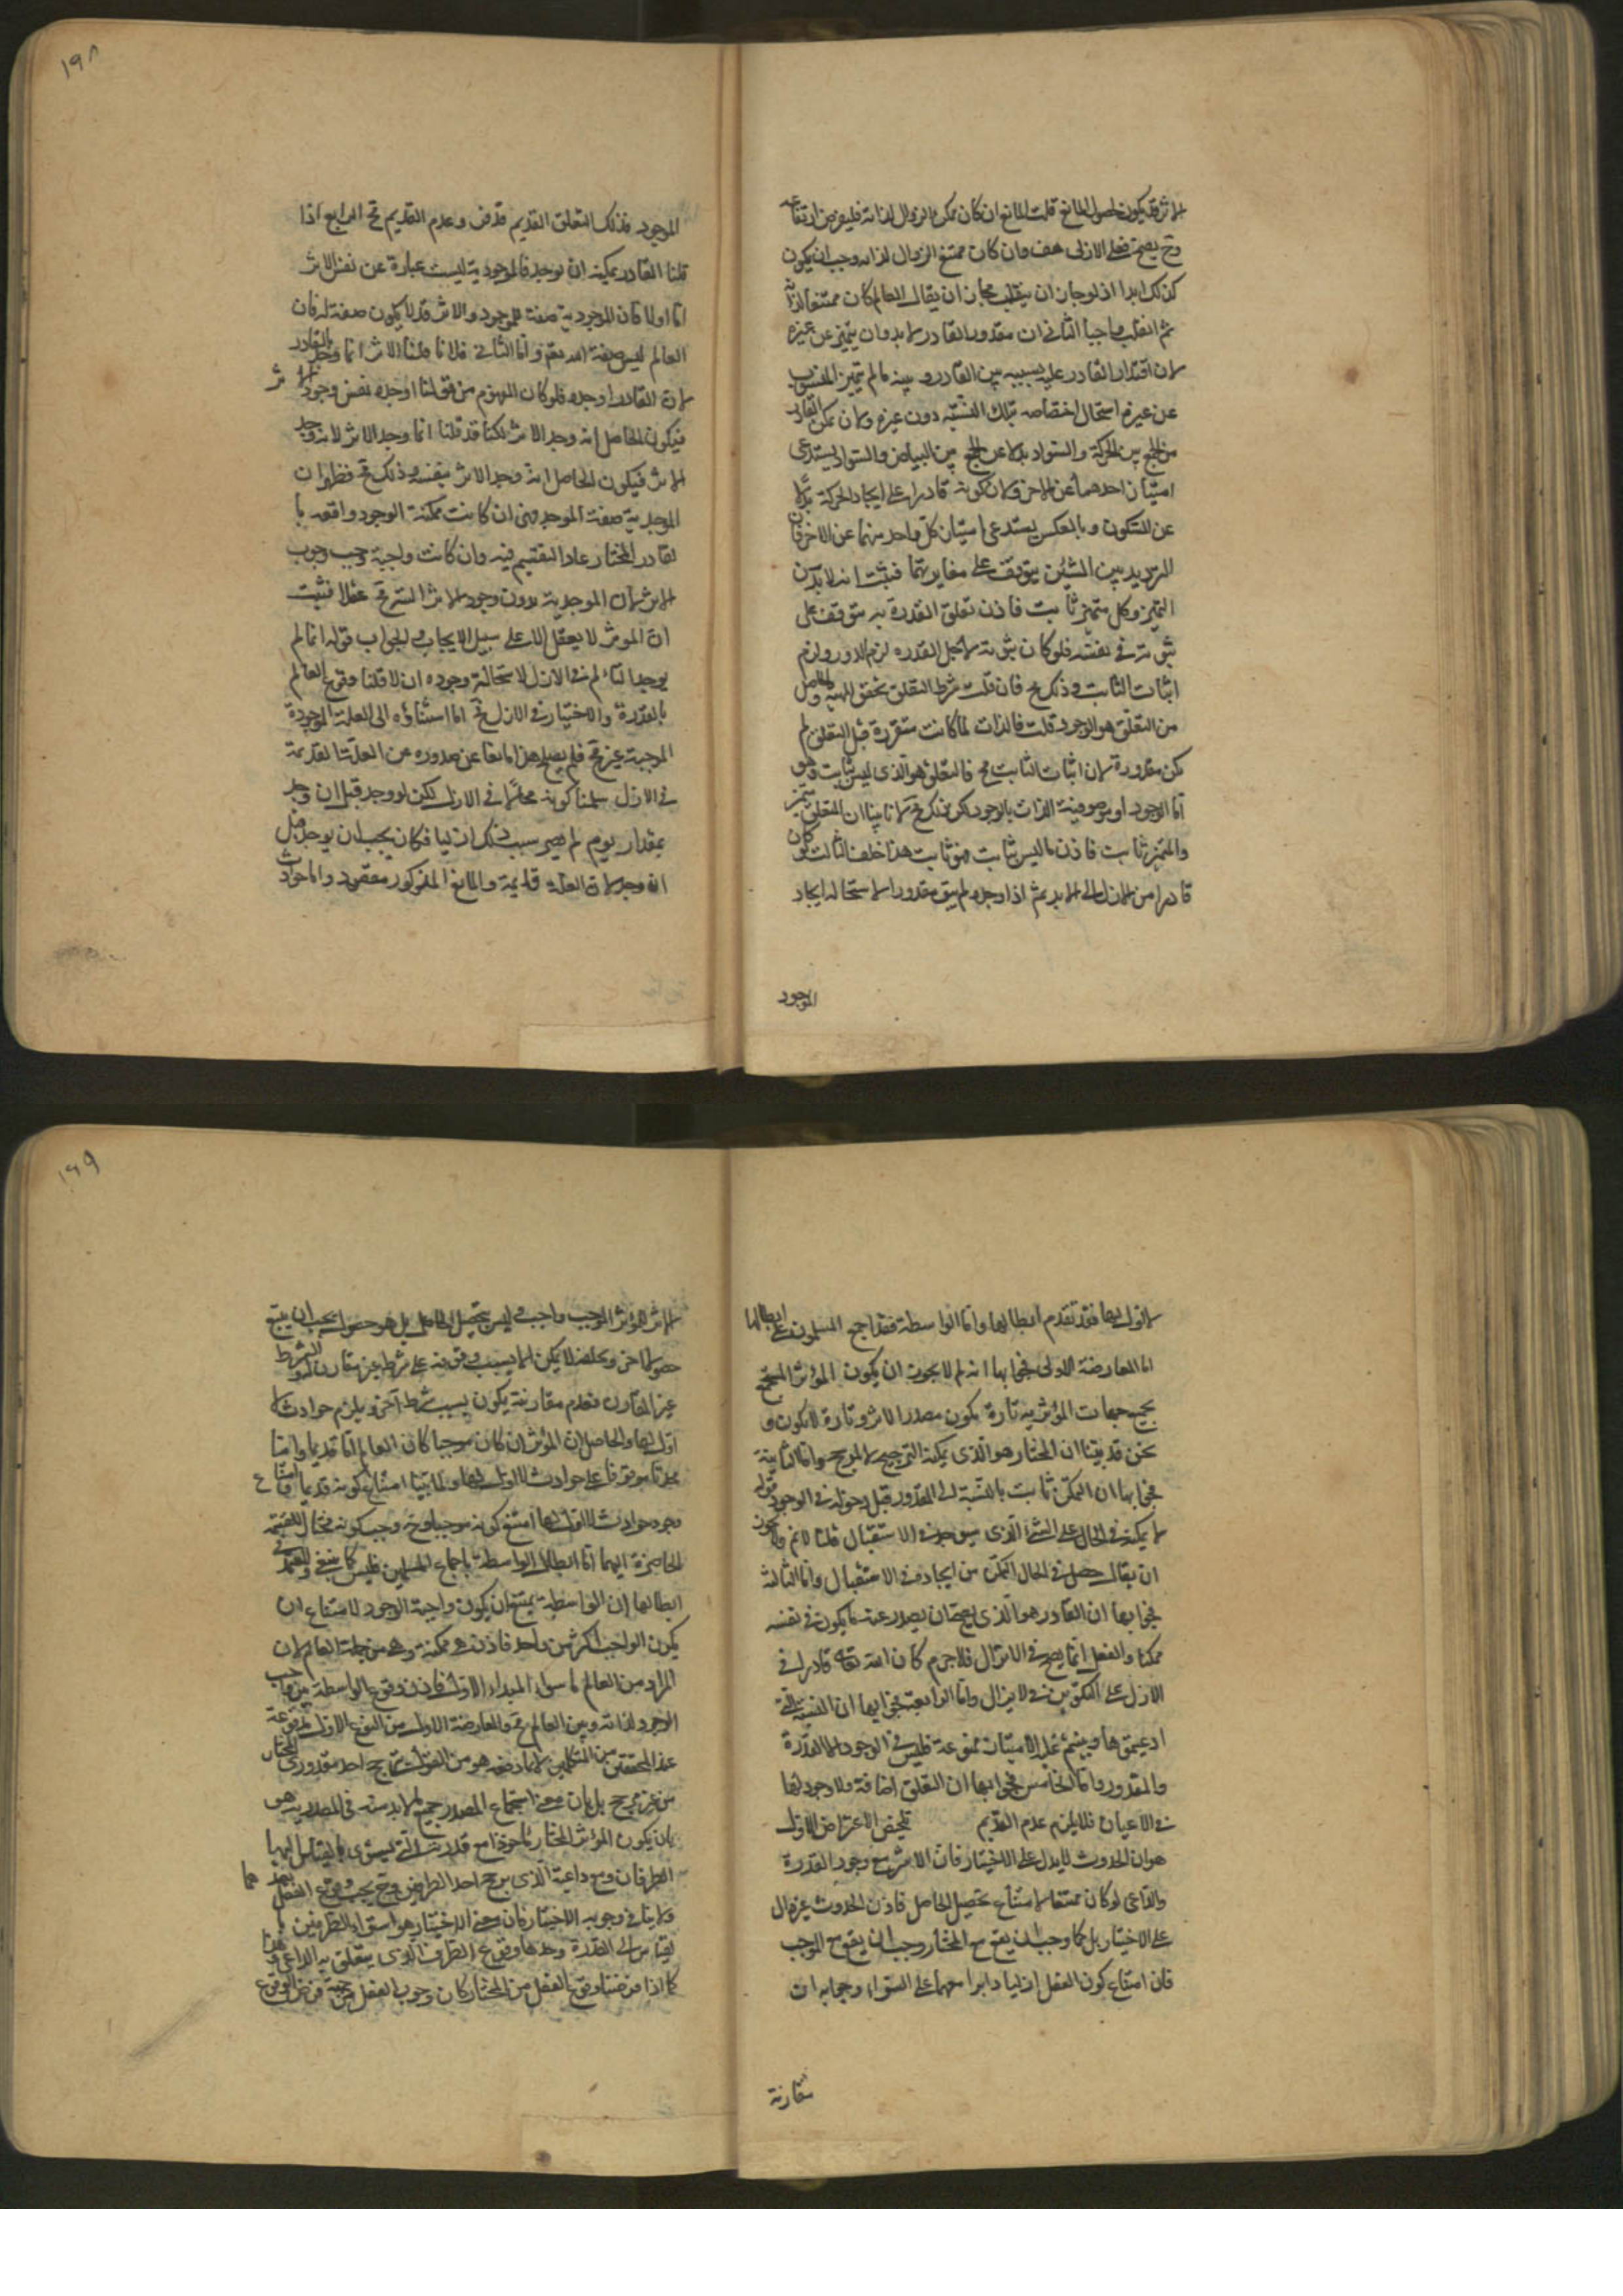 الاثر قد يكون لحصول المانع قلت المانع ان كان ممكن الزوال لذاته فليفرض ارتفاعه
وح يصح فعل الازلى هف وان كان ممتنع الزوال لذاته وجب ان يكون
كذلك ابدا اذ لو جاز ان ينقلب لجاز ان يقال العالم كان ممتنعا لذاته
ثم انقلب واجبا الثانى ان مقدور القادر لا بد وان يتميز عن غيره
لان اقتدار القادر عليه نسبة بين القادر و بينه مالم يتميز المنسوب
عن غيره استحال اختصاصه بتلك النسبة دون غيره ولان تمكن القادر
من الجمع بين الحركة والسواد بدلا عن الجمع بين البياض والسواد يستدعى
امتياز احدهما عن الاخر ولان كونه قادرا على ايجاد الحركة بدلا
عن السكون و بالعكس يستدعى امتياز كل واحد منهما عن الاخر فان
الترديد بين الشيئين يتوقف على مغايرتهما فثبت انه لا بد من
التميز وكل متميز ثابت فاذن تعلق القدرة به متوقف على
ثبوته فى نفسه فلو كان ثبوته لاجل القدره لزم الدور ولزم
اثبات الثابت وذلك مح فان قلت شرط التعلق تحقق المهية والحاصل
من التعلق هو الوجود قلت فالذات لما كانت متقررة قبل التعلق لم
تكن مقدورة لان اثبات الثابت مح فالتعلق هو الذى ليس ثابت وهو
اما الوجود او موصوفية الذات بالوجود لكن ذلك مح لانا بينا ان المتعلق متميز
والمتميز ثابت فاذن ما ليس ثابت فهو ثابت هذا خلف الثالث لو كان
قادرا من الازل الى الابد ثم اذا اوجده لم يبق مقدورا لاستحالة ايجاد
الموجود
١٩٨
الموجود فذلك التعلق القديم قد فنى وعدم القديم مح الرابع اذا
قلنا القادر يمكنه ان يوجد فالموجدية ليست عبارة عن نفس الاثر
اما اولا فان الموجدية صفة للموجد والاثر قد لا يكون صفة له فان
العالم ليس صفة الله تعم و اما الثانى فلانا قلنا الاثر انما وجد بالقادر
لان القادر اوجده فلو كان المفهوم من قولنا اوجده نفس وجود الاثر
فيكون الحاصل انه وجد الاثر لكنا قد قلنا انما وجد الاثر لانه وجد
الاثر فيكون الحاصل انه وجد الاثر بنفسه وذلك مح فظهر ان
الموجدية صفة الموجد فهى ان كانت ممكنة الوجود واقعه با
لقادر المختار عاد التقسيم فيه وان كانت واجبة وجب وجوب
الاثر لان الموجدية بدون وجود الاثر البتة مح عقلا فثبت
ان الموثر لا يعقل الا على سبيل الايجاب والجواب قوله انما لم
يوجد العالم فى الازل لاستحالة وجوده ازلا قلنا وقوع العالم
بالقدرة والاختيار فى الازل مح اما استناده الى العلة الموجودة
الموجبة غير مح فلم يصلح هذا مانعا عن صدوره عن العلة القديمة
فى الازل سلمنا كونه محالا فى الازل لكن لو وجد قبل ان وجد
بمقدار يوم لم يصر بسبب ذلك ازليا فكان يجب ان يوجد قبل
ان وجد لان العلة قديمة والمانع المذكور مفقود والحوادث
لا اول لها فقد تقدم ابطالها واما الواسطة فقد اجمع المسلمون على ابطالها
اما المعارضة الاولى فجوابها انه لم لا يجوز ان يكون المؤثر المستجمع
بجميع جهات المؤثرية تارة يكون مصدر الاثر وتارة لا يكون و
نحن قد بينا ان المختار هو الذى يمكنه الترجيح لا لمرجح واما الثانية
فجوابها ان التمكن ثابت بالنسبة الى المقدور قبل دخوله فى الوجود قوله
لا يمكن فى الحال على الشئ الذى سيوجد فى الاستقبال قلنا لا نم ولم لا يجوز
ان يقال حصل فى الحال التمكن من ايجاده فى الاستقبال واما الثالثة
فجوابها ان القادر هو الذى يصح ان يصدر عنه ما يكون فى نفسه
ممكنا والفعل انما يصح فى لا يزال فلا جرم كان الله تعالى قادرا فى
الازل على التكوين فى لا يزال واما الرابعة فجوابها ان النسبة التى
ادعيتموها وبنيتم عليها الامتياز ممنوعة فليس فى الوجود الا القدرة
والمقدور واما الخامس فجوابها ان التعلق اضافة ولا وجود لها
فى الاعيان فلا يلزم عدم القديم تلخيص الاعتراض الاول
هو ان الحدوث لا يدل على الاختيار فان الاثر مع وجود القدرة
والداعى لو كان ممتنعا لامتناع تحصيل الحاصل فاذن الحدوث غير دال
على الاختيار بل كما وجب ان يقع مع المختار وجب ان يقع مع الموجب
فان امتناع كون الفعل ازليا دابرا معهما على السواء وجوابه ان
مقارنة
١٩٩
الاثر المؤثر الموجب واجب و ليس تحصيل الحاصل بل هو حصول يجب ان يتبع
حصولا اخر وتخلفه لا يمكن الا بسبب وقوفه على شرط غير مقارن والشرط
غير المقارن فعدم مقارنته يكون بسبب شرط آخر و يلزم حوادث لا
اول لها والحاصل ان المؤثر ان كان موجبا كان العالم اما قديما واما
محدثا موقوفا على حوادث لا اول لها ولما بينا امتناع كونه قديما وامتناع
وجود حوادث لا اول لها امتنع كونه موجبا وح وجب كونه مختارا للقسمة
الحاصرة ايهما اما ابطال الواسطة باجماع المسلمين فليس كما ينبغى والمعتمد فى
ابطالها ان الواسطة يمتنع ان يكون واجبة الوجود لامتناع ان
يكون الواجب اكثر من واحد فاذن هى ممكنة وهى من جملة العالم لان
المراد من العالم ما سوى المبداء الاول فاذن وقوع الواسطة بين واجب
الوجود لذاته و بين العالم مح والمعارضة الاولى من النوع الاول مدفوعة
عند المحققين من المتكلمين لا بما دفعه هو من القول بترجيح احد مقدورى المختار
من غير مرجح بل بان معنى استجماع المصدر جميع ما لا بد منه فى المصدرية هو
بان يكون المؤثر المختار ماخوذا مع قدرته التى يستوى بالقياس اليها
الطرفان ومع داعيه الذى يرجح احد الطرفين وح يجب وقوع الفعل بعدهما
ولا ينافى وجوبه الاختيار فان معنى الاختيار هو استواء الطرفين با
لقياس الى القدرة وحدها ووقوع الطرف الذى يتعلق به الداعى وهذا
كما اذا فرضنا وقوع الفعل من المختار كان وجوب الفعل من جهة فرض الوقوع